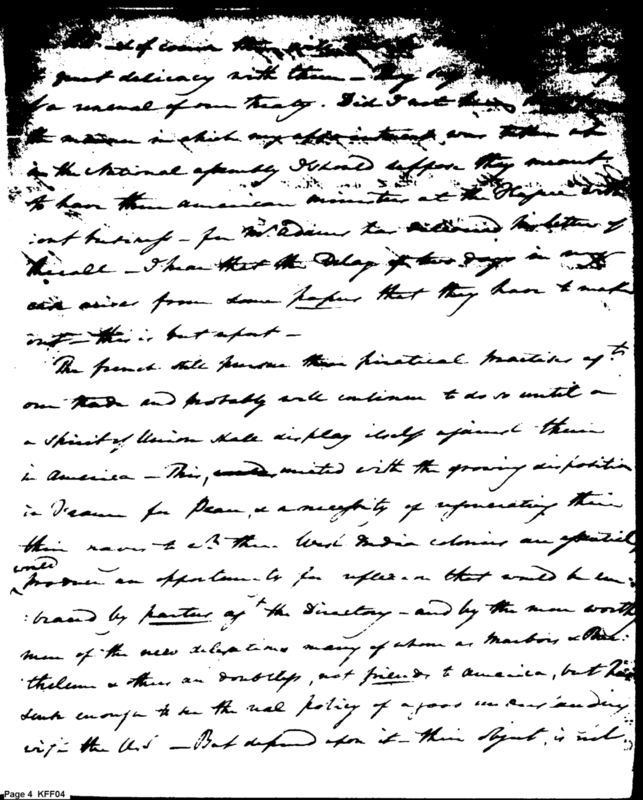 & of course
great delicacy with them – they
for a renewal of our treaty. Did I not
the manner in which my appointment was taken up
in the National assembly I should suppose they meant
to have their american minister at the Hague with
:out business – for Mr. Adams has delivered his letter of
Recall – I hear that the Delay of two days in my
case arises from some papers that they have to make
out – this is but apart –
The french still pursue their piratical practises agt.
our trade and probably will continue to do so until a
a spirit of Union shall display itself against them
in America – This, united with the growing disposition
in France for Peace, & a necessity of regenerating their
their navies to the West India colonies are essential
would produce an opportunity for reflexion that would be em
:braced by parties agt the Directory – and by the more worthy
men of the new delegations many of whom as Marbois & Bar
thelemi & others are doubtless, not friends to America, but have
sense enough to see the real policy of a good understanding
with the U.S – But depend upon it – their object, is not
Page 4 KFF04